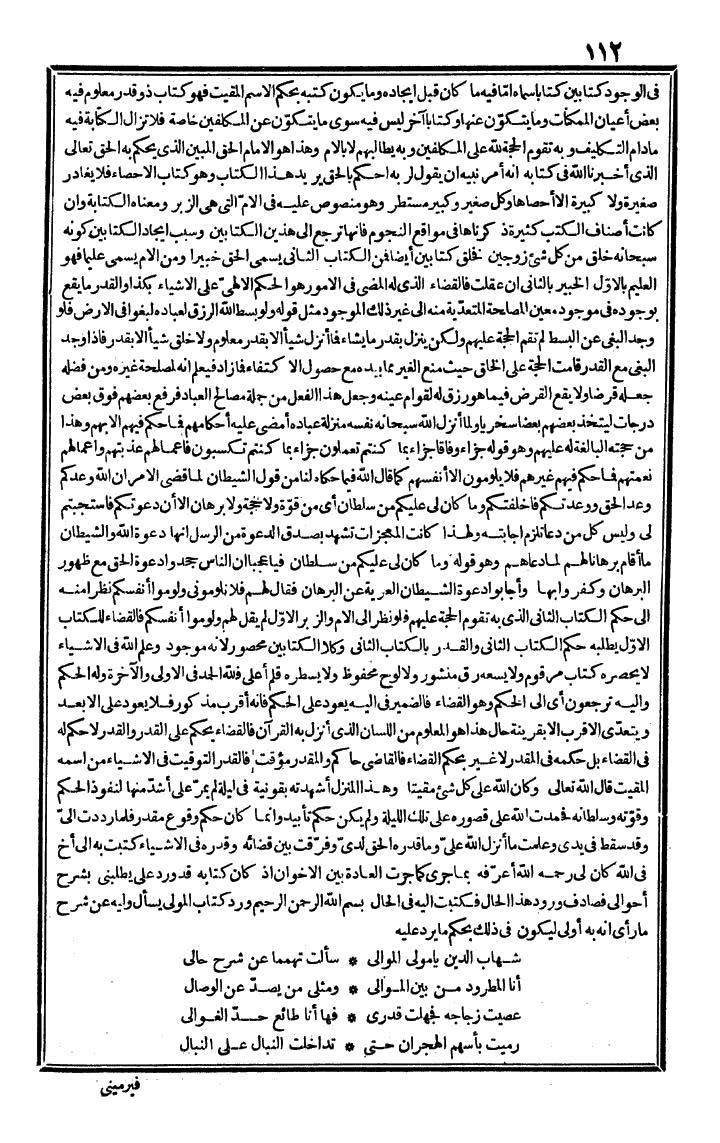 ١١٢
فى الوجود كتابين كتابا سماه امّا فيه ما كان قبل ايجاده وما يكون كتبه بحكم الاسم المقيت فهو كتاب ذو قدر معلوم فيه
بعض أعيان الممكنات وما يتكوّن عنها وكتابا آخر ليس فيه سوى ما يتكوّن عن المكلفين خاصة فلا تزال الكتابة فيه
مادام التكليف وبه تقوم الحجة لله على المكلفين وبه يطالبهم لا بالام وهذا هو الامام الحق المبين الذى يحكم به الحق تعالى
الذى أخبرنا الله فى كتابه انه أمر نبيه ان يقول لربه احكم بالحق يريد هذا الكتاب وهو كتاب الاحصاء فلا يغادر
صغيرة ولا كبيرة الا أحصاها وكل صغير وكبير مستطر وهو منصوص عليه فى الامّ التى هى الزبر ومعناه الكتابة وان
كانت أصناف الكتب كثيرة ذكرناها فى مواقع النجوم فانها ترجع الى هذين الكتابين وسبب ايجاد الكتابين كونه
سبحانه خلق من كل شئ زوجين فخلق كتابين أيضا فمن الكتاب الثانى يسمى الحق خبيرا ومن الام يسمى عليما فهو
العليم بالاوّل الخبير بالثانى ان عقلت فالقضاء الذى له المضى فى الامور هو الحكم الالهىّ على الاشياء بكذا والقدر ما يقع
بوجوده فى موجود معين المصلحة المتعدّية منه الى غير ذلك الموجود مثل قوله ولو بسط الله الرزق لعباده لبغوا فى الارض فلو
وجد البغى عن البسط لم تقم الحجة عليهم ولكن ينزل بقدر ما يشاء فما أنزل شيأ الا بقدر معلوم ولا خلق شيأ الا بقدر فاذا وجد
البغى مع القدر قامت الحجة على الخلق حيث منع الغير مما بيده مع حصول الاكتفاء فما زاد فيعلم انه لمصلحة غيره ومن فضله
جعله قرضا ولا يقع القرض فيما هو رزق له لقوام عينه وجعل هذا الفعل من جملة مصالح العباد فرفع بعضهم فوق بعض
درجات ليتخذ بعضهم بعضا سخريا ولما أنزل الله سبحانه نفسه منزلة عباده أمضى عليه أحكامهم فما حكم فيهم الا بهم وهذا
من حجته البالغة له عليهم وهو قوله جزاء وفاقا جزاء بما كنتم تعملون جزاء بما كنتم تكسبون فاعمالهم عذبتهم واعمالهم
نعمتهم فما حكم فيهم غيرهم فلا يلومون الا أنفسهم كما قال الله فيما حكاه لنا من قول الشيطان لما قضى الامر ان الله وعدكم
وعد الحق ووعدتكم فاخلفتكم وما كان لى عليكم من سلطان أى من قوّة ولا حجة ولا برهان الا أن دعوتكم فاستجبتم
لى وليس كل من دعا تلزم اجابته ولهذا كانت المعجزات تشهد بصدق الدعوة من الرسل انها دعوة الله والشيطان
ما أقام برهانا لهم لما دعاهم وهو قوله وما كان لى عليكم من سلطان فيا عجبا ان الناس جحدوا دعوة الحق مع ظهور
البرهان وكفروا بها وأجابوا دعوة الشيطان العرية عن البرهان فقال لهم فلا تلومونى ولوموا أنفسكم نظرا منه
الى حكم الكتاب الثانى الذى به تقوم الحجة عليهم فلو نظر الى الام والزبر الاوّل لم يقل لهم ولوموا أنفسكم فالقضاء للكتاب
الاوّل يطلبه حكم الكتاب الثانى والقدر بالكتاب الثانى وكلا الكتابين محصور لانه موجود وعلم الله فى الاشياء
لا يحصره كتاب مرقوم ولا يسعه رق منشور ولا لوح محفوظ ولا يسطره قلم أعلى فلله الحمد فى الاولى والآخرة وله الحكم
واليه ترجعون أى الى الحكم وهو القضاء فالضمير فى اليه يعود على الحكم فانه أقرب مذكور فلا يعود على الابعد
ويتعدّى الاقرب الا بقرينة حال هذا هو المعلوم من اللسان الذى أنزل به القرآن فالقضاء يحكم على القدر والقدر لا حكم له
فى القضاء بل حكمه فى المقدر لا غير بحكم القضاء فالقاضى حاكم والمقدر مؤقت فالقدر التوقيت فى الاشياء من اسمه
المقيت قال الله تعالى وكان الله على كل شئ مقيتا وهذا المنزل أشهدته بقونية فى ليلة لم يمرّ علىّ أشدّ منها لنفوذ الحكم
وقوّته وسلطانه فحمدت الله على قصوره على تلك الليلة ولم يكن حكم تأبيد وانما كان حكم وقوع مقدر فلما رددت الىّ
وقد سقط فى يدى وعلمت ما أنزل الله علىّ وما قدره الحق لدىّ وفرّقت بين قضائه وقدره فى الاشياء كتبت به الى أخ
فى الله كان لى رحمه الله أعرّفه بما جرى كما جرت العادة بين الاخوان اذ كان كتابه قد ورد علىّ يطلبنى بشرح
أحوالى فصادف ورود هذا الحال فكتبت اليه فى الحال بسم الله الرحمن الرحيم ورد كتاب المولى يسأل وليه عن شرح
ما رأى انه به أولى ليكون فى ذلك بحكم ما يرد عليه
شهاب الدين يا مولى الموالى * سألت تهمما عن شرح حالى
أنا المطرود من بين الموالى * ومثلى من يصدّ عن الوصال
عصيت زجاجه فجهلت قدرى * فها أنا طائع حدّ الغوالى
رميت بأسهم الهجران حتى * تداخلت النبال على النبال
فيرمينى